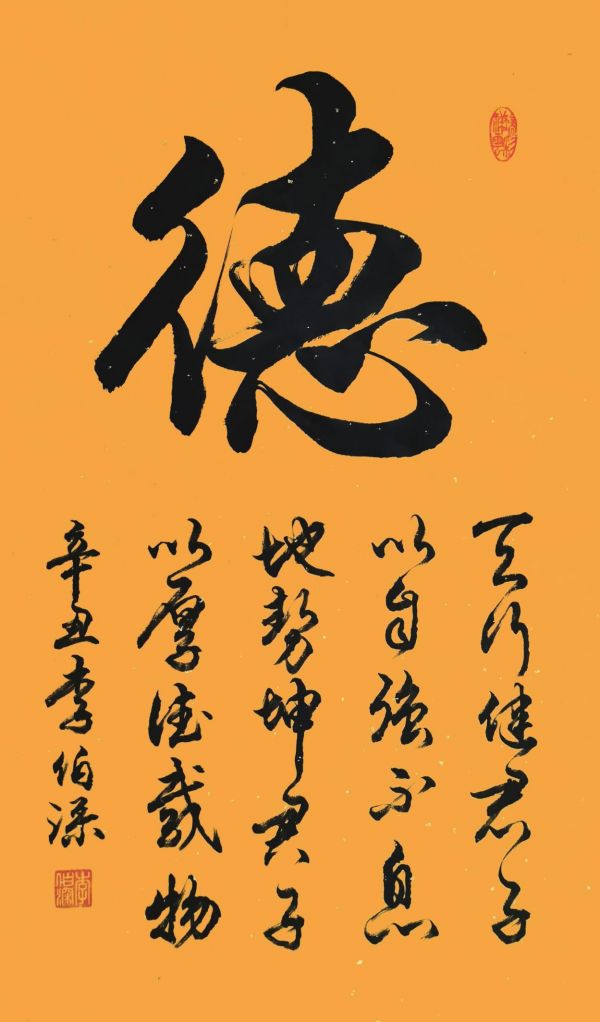 德
天行健君子
以自強不息
地勢坤君子
以厚德載物
辛丑李伯深